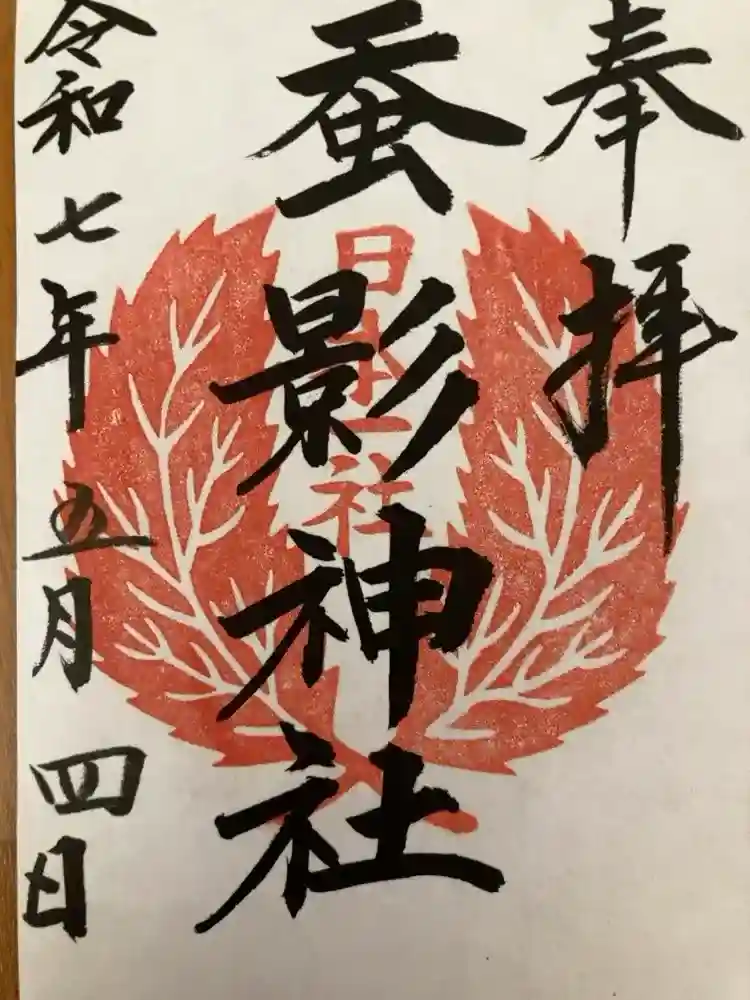 奉拝
蚕影神社
日本一社
令和七年五月四日